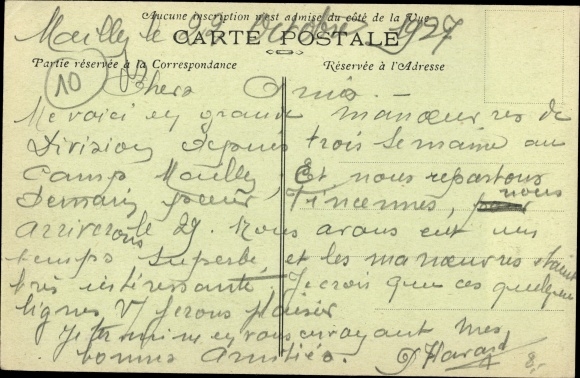 Aucune inscription n'est admise du côté de la Vue
Mailly le 22 Octobre 1927
CARTE POSTALE
Partie réservée à la Correspondance
Réservée à l'Adresse
10
Chers Amis. —
Me voici en grande manœuvres de
Division depuis trois Semaine au
Camp Mailly, Et nous repartons
Demain pour Vincennes, nous
arriverons le 29. Nous avons eut un
temps superbe, et les manœuvres étaient
très intéressante. Je crois que ces quelques
lignes V/ ferons plaisir
Je termine en vous envoyant mes
bonnes Amitiés.
8,-